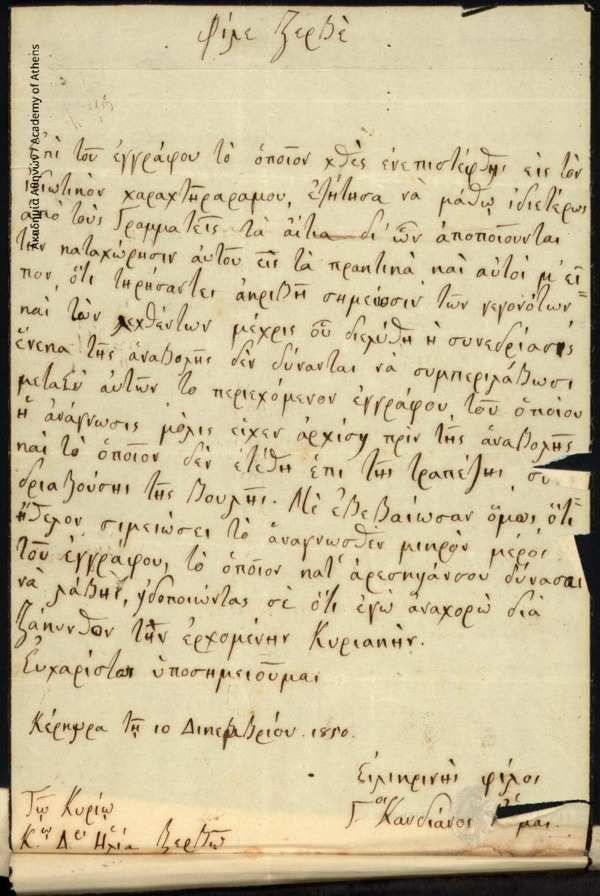 Φίλε Ζερβὲ
Ἐπὶ τοῦ ἐγγράφου τὸ ὁποῖον χθὲς ἐνεπιστέφθης εἰς τὸν
ἰδιωτικὸν χαραχτηραραμου, ἐζήτησα νὰ μάθω ἰδιετέρως
ἀπὸ τοὺς Γραμματεῖς τὰ αἴτια δι' ὧν ἀποποίουνται
τὴν καταχώρησιν αὐτοῦ εἰς τὰ πρακτικὰ καὶ αὐτοὶ μ' εἶ=
πον, ὅτι τηρήσαντες ἀκριβῆ σημείωσιν τῶν γεγονότων
καὶ τῶν λεχθέντων μέχρις οὗ διελύθη ἡ συνεδρίασις
ἕνεκα τῆς ἀναβολῆς δὲν δύνανται νὰ συμπεριλάβωσι
μεταξὺ αὐτῶν τὸ περιεχόμενον ἐγγράφου, τοῦ ὁποίου
ἡ ἀνάγνωσις μόλις εἶχεν ἀρχίσῃ πρὶν τῆς ἀναβολῆς
καὶ τὸ ὁποῖον δὲν ἐτέθη ἐπὶ τῆς τραπέζης συ
δριαζούσης τῆς Βουλῆς. Μὲ ἐβεβαίωσαν ὅμως ὅτι
ἤθελον σιμειώσει τὸ ἀναγνωσθὲν μικρὸν μέρος
τοῦ ἐγγράφου, τὸ ὁποῖον κατ' ἀρεσκιάνσου δύνασαι
νὰ λάβῃς, ἠδοποιώντας σὲ ὅτι ἐγὼ ἀναχορῶ διὰ
Ζάκυνθον τὴν ἐρχομένην Κυριακήν.
Εὐχαρίστως ὑποσημειοῦμαι
Κέρκυρα τῇ 10 Δικεμβρίου 1850.
Εἰλικρινὴς φίλος
Γ.οι Κανδιάνος Ῥώμας.
Τῷ Κυρίῳ
Κ.ῳ Δ. Ηλίᾳ Ζερβῷ
Ακαδημία Αθηνών / Academy of Athens